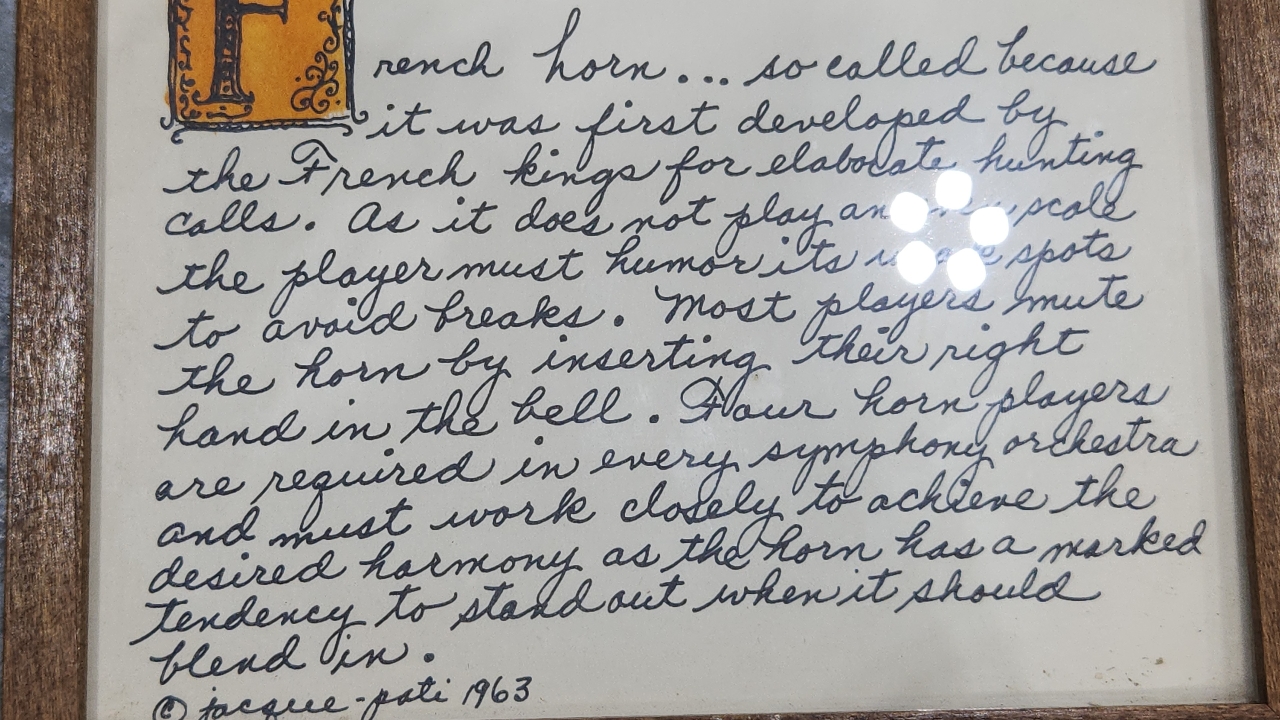 French horn... so called because
it was first developed by
the French kings for elaborate hunting
calls. As it does not play an scale
the player must humor its spots
to avoid breaks. Most players mute
the horn by inserting their right
hand in the bell. Four horn players
are required in every symphony orchestra
and must work closely to achieve the
desired harmony as the horn has a marked
tendency to stand out when it should
blend in.
© jacque-pati 1963